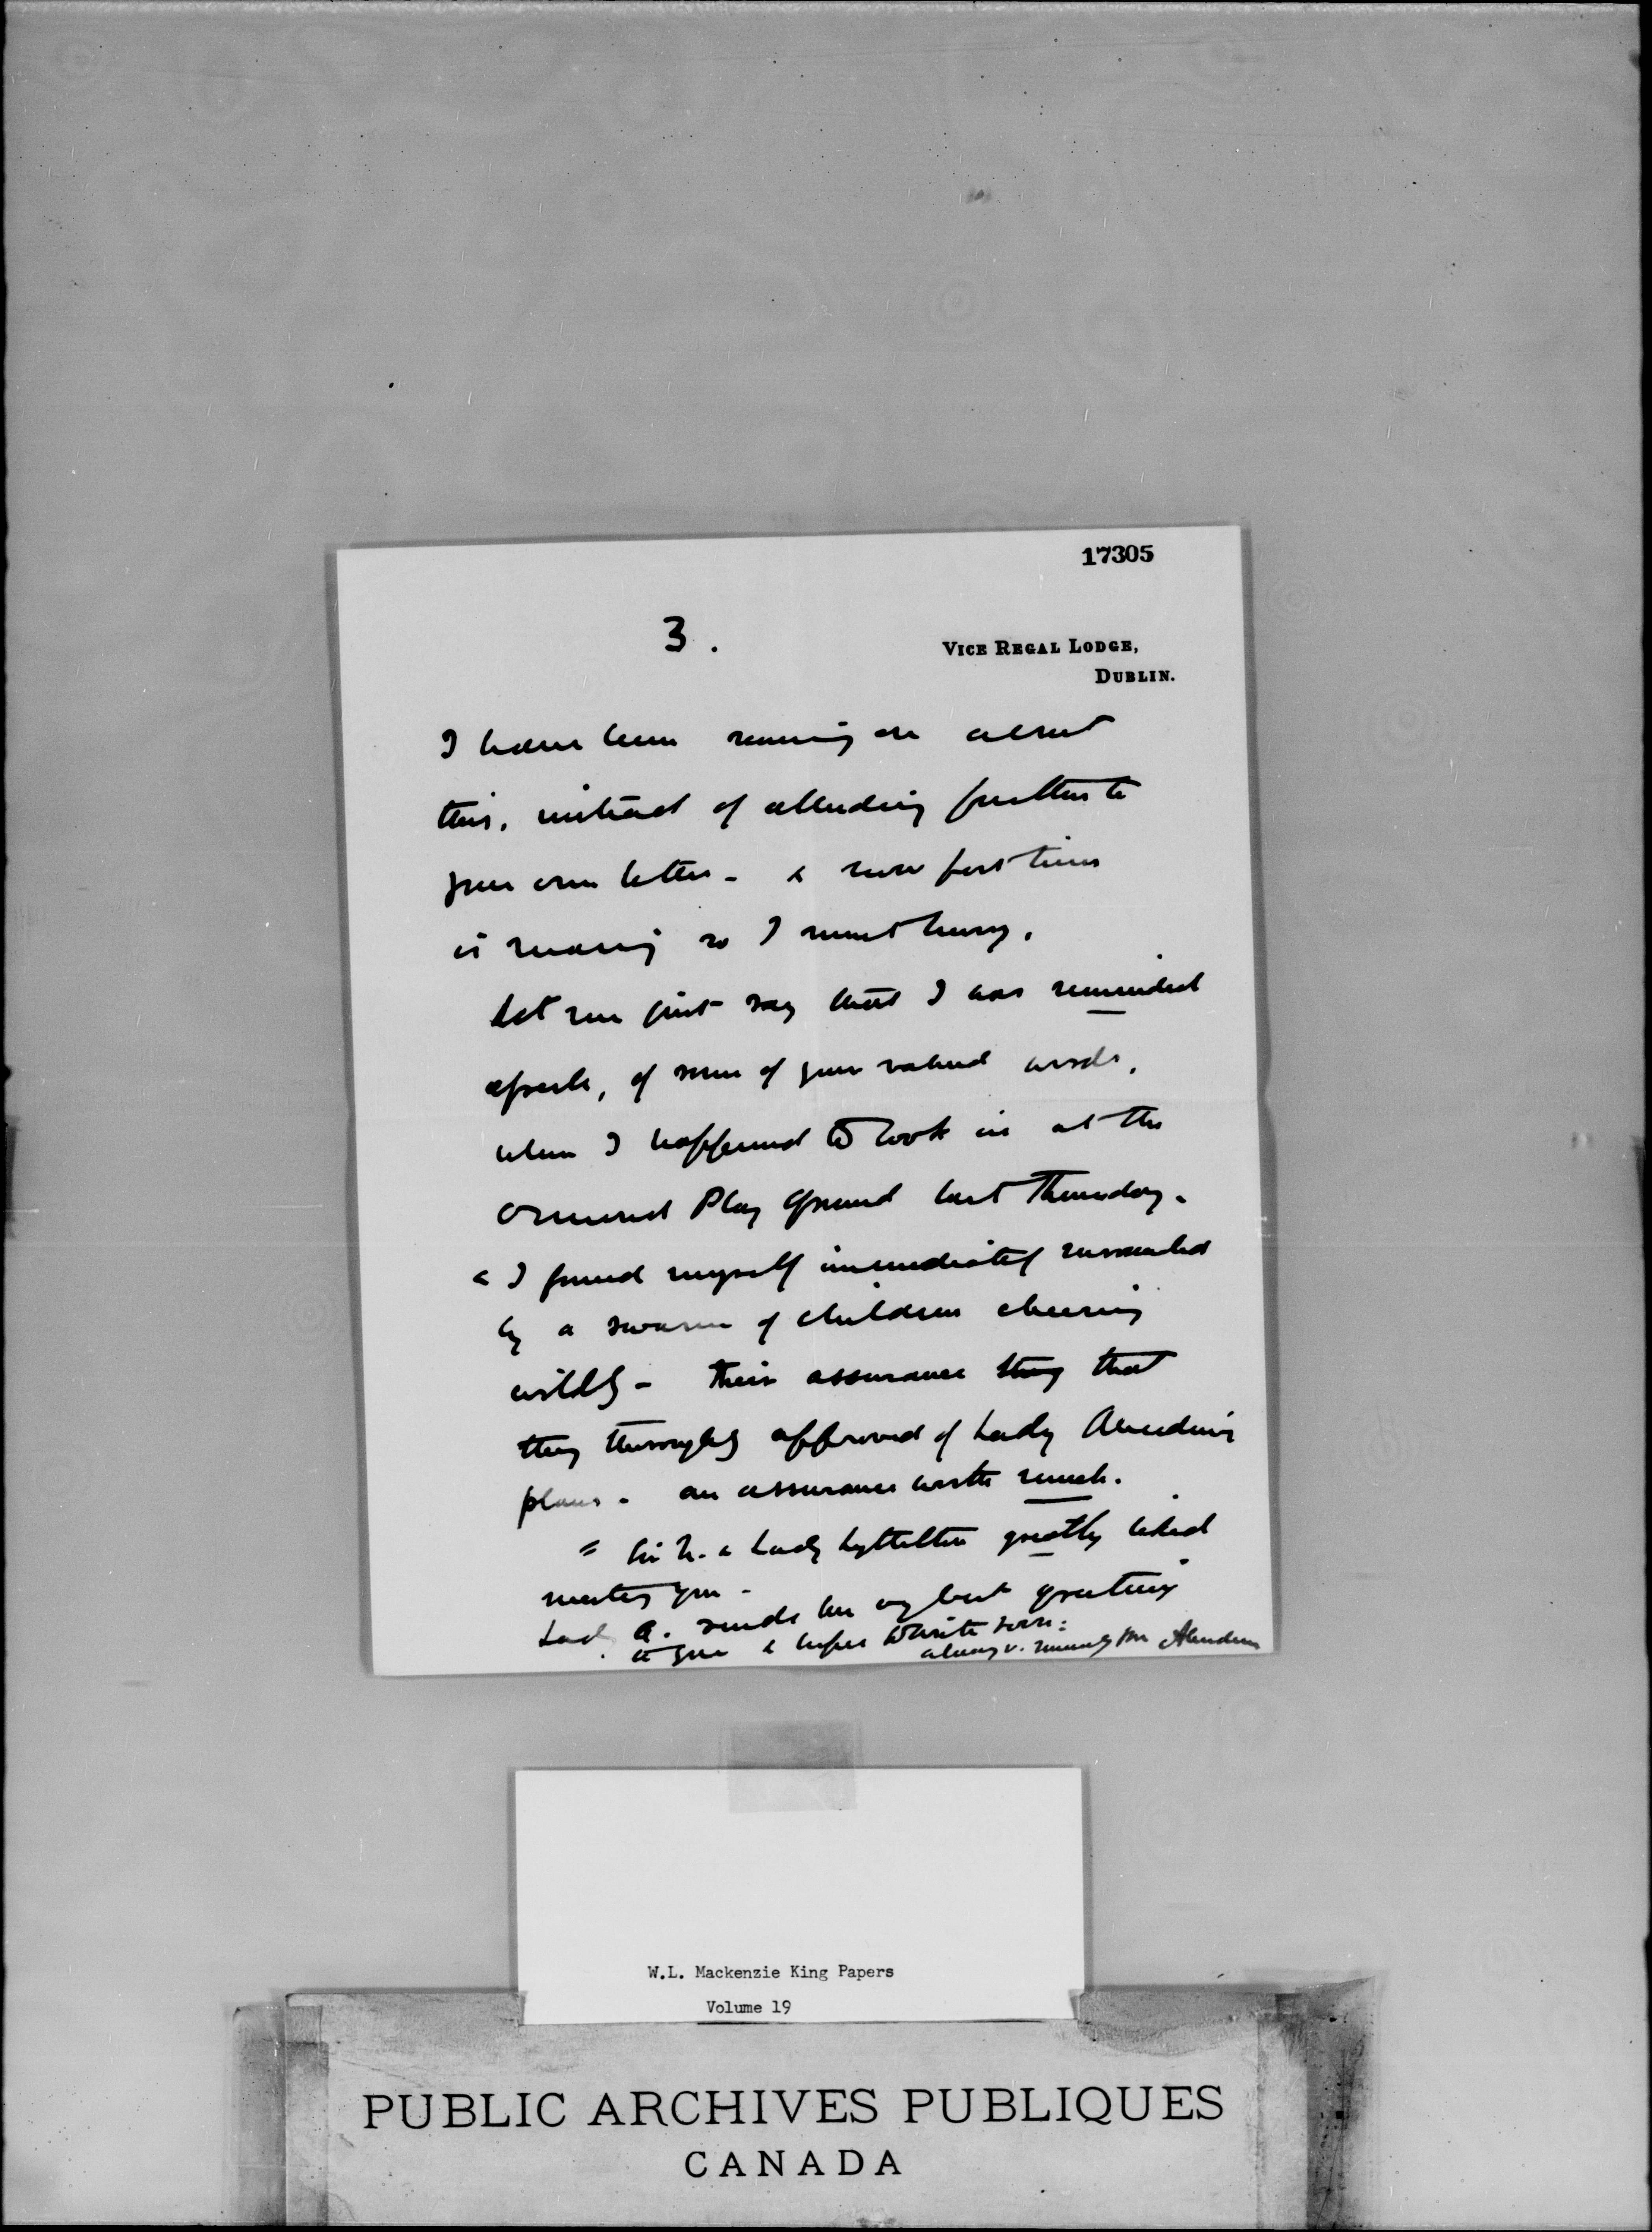 17305
3.
VICE REGAL LODGE,
DUBLIN.
I have been running on about
this, instead of alluding further to
your own letter - & now post time
is nearing so I must hurry.
Let me just say that I was reminded
afresh, of some of your valued words,
when I happened to look in at the
Ormond Play Ground last Thursday.
& I found myself immediately surrounded
by a swarm of children cheering
wildly - their assurance that
they thoroughly approved of Lady Aberdeen's
plans - an assurance worth much.
= Sir N. & Lady Lyttelton greatly liked
meeting you -
Lady A. sends her very best greetings
to you & hopes to write soon:
always v. sincerely yrs Aberdeen
W.L. Mackenzie King Papers
Volume 19
PUBLIC ARCHIVES PUBLIQUES
CANADA